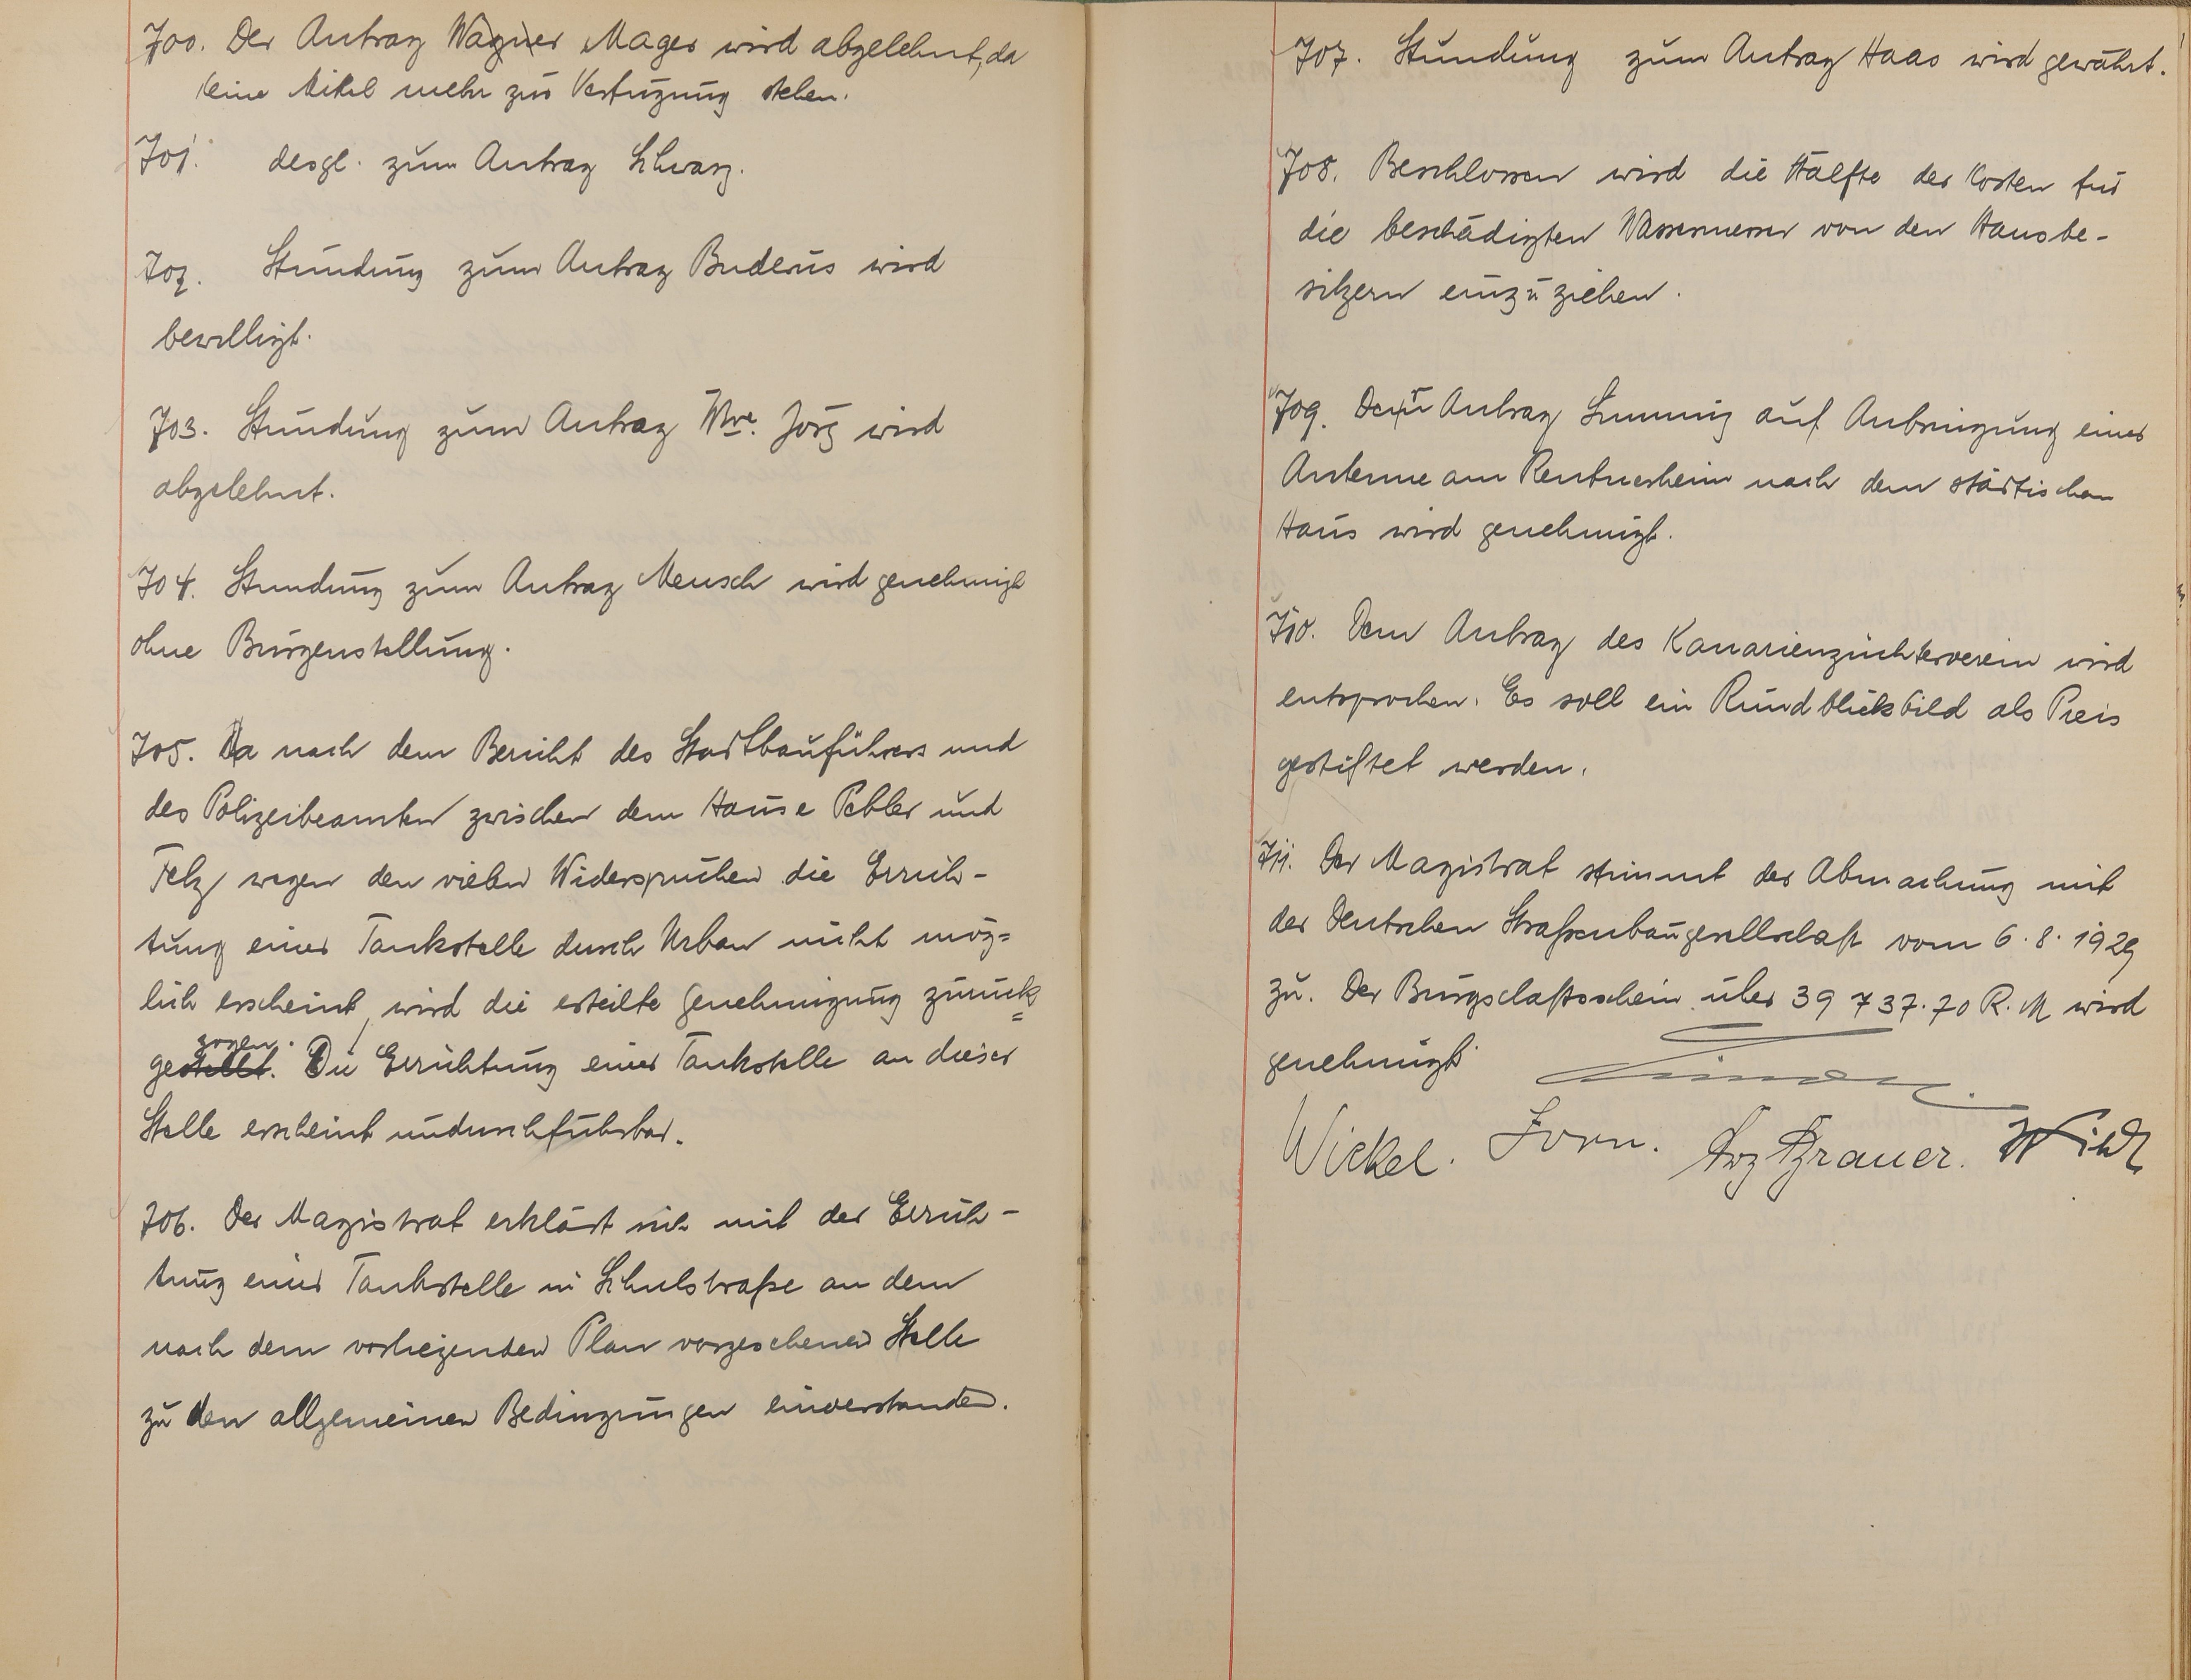 700. Der Antrag Wagner Mager wird abgelehnt, da
keine Mittel mehr zur Verfügung stehen.
701. desgl. zum Antrag Schwarz.
702. Stundung zum Antrag Buderus wird
bewilligt.
703. Stundung zum Antrag Wwe. Jörg wird
abgelehnt.
704. Stundung zum Antrag Mensch wird genehmigt
ohne Bürgenstellung.
705. Da nach dem Bericht des Stadtbauführers und
des Polizeibeamten zwischen dem Hause Pebler und
Felz wegen den vielen Widersprüchen die Errich-
tung einer Tankstelle durch Urban nicht mög=
lich erscheint, wird die erteilte Genehmigung zurück=
zogen.
gestellt. Die Errichtung einer Tankstelle an dieser
Stelle erscheint undurchführbar.
706. Der Magistrat erklärt sich mit der Errich-
tung einer Tankstelle in Schulstraße an dem
nach dem vorliegenden Plan vorgesehenen Stelle
zu den allgemeinen Bedingungen einverstanden.
707. Stundung zum Antrag Haas wird gewährt.
708. Beschlossen wird die Hälfte der Kosten für
die beschädigten Wassermesser von den Hausbe-
sitzern einzuziehen.
709. Der Antrag auf Anbringung einer
Antenne am Rentnerheim nach dem städtischen
Haus wird genehmigt.
710. Dem Antrag des Kanarienzüchterverein wird
entsprochen. Es soll ein Rundblicksbild als Preis
gestiftet werden.
711. Der Magistrat stimmt der Abmachung mit
der Deutschen Straßenbaugesellschaft vom 6.8.1929
zu. Der Bürgschaftsschein über 39 737.70 R.M wird
genehmigt.
Wickel. Forn. Brauer.